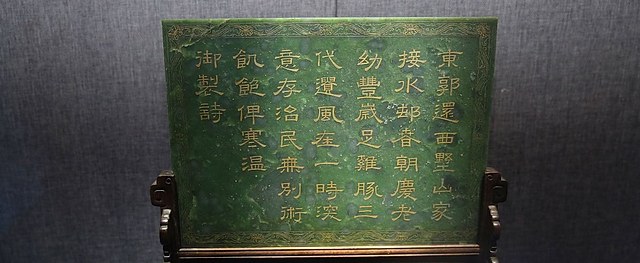 東郭還西墅山家
接水邨春朝慶老
幼豐歲足雞豚三
代遺風在一時深
意存治民無別術
飢飽俾寒温
御製詩